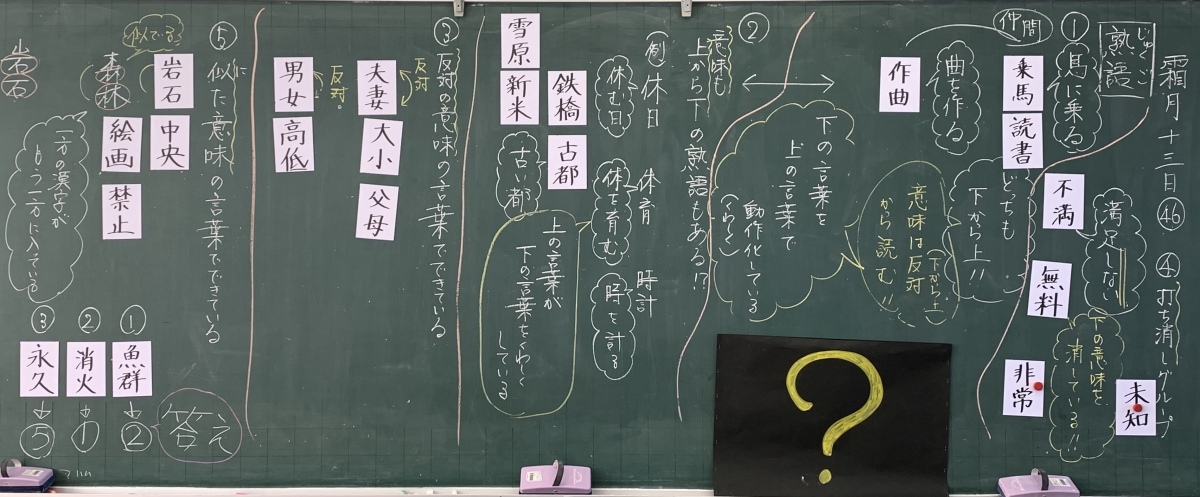 霜月十三日㊻
じゅくご
熟語
④打ち消しグループ
満足しない
不満
無料
非常
未知
下の意味を
消している!!
①
馬に乗る
乗馬
読書
仲間
作曲
曲を作る
どっちも
下から上!!
意味は反対
(下から上)
から読む!!
下の言葉を
上の言葉で
動作化している
(くわしく)
②
意味も
上から下の熟語もある!?
(例)休日
休む日
体育
体を育む
時計
時を計る
鉄橋
古都
古い都
雪原
新米
上の言葉が
下の言葉をくわしく
している
?
③反対の意味の言葉でできている
反対
夫妻
大小
父母
反対。
男女
高低
⑤似た意味の言葉でできている
に
似てる
岩石
中央
森林
絵画
禁止
岩石
一方の漢字が
もう一方に入っている
答え
①
魚群
↓
②
②
消火
↓
①
③
永久
↓
⑤